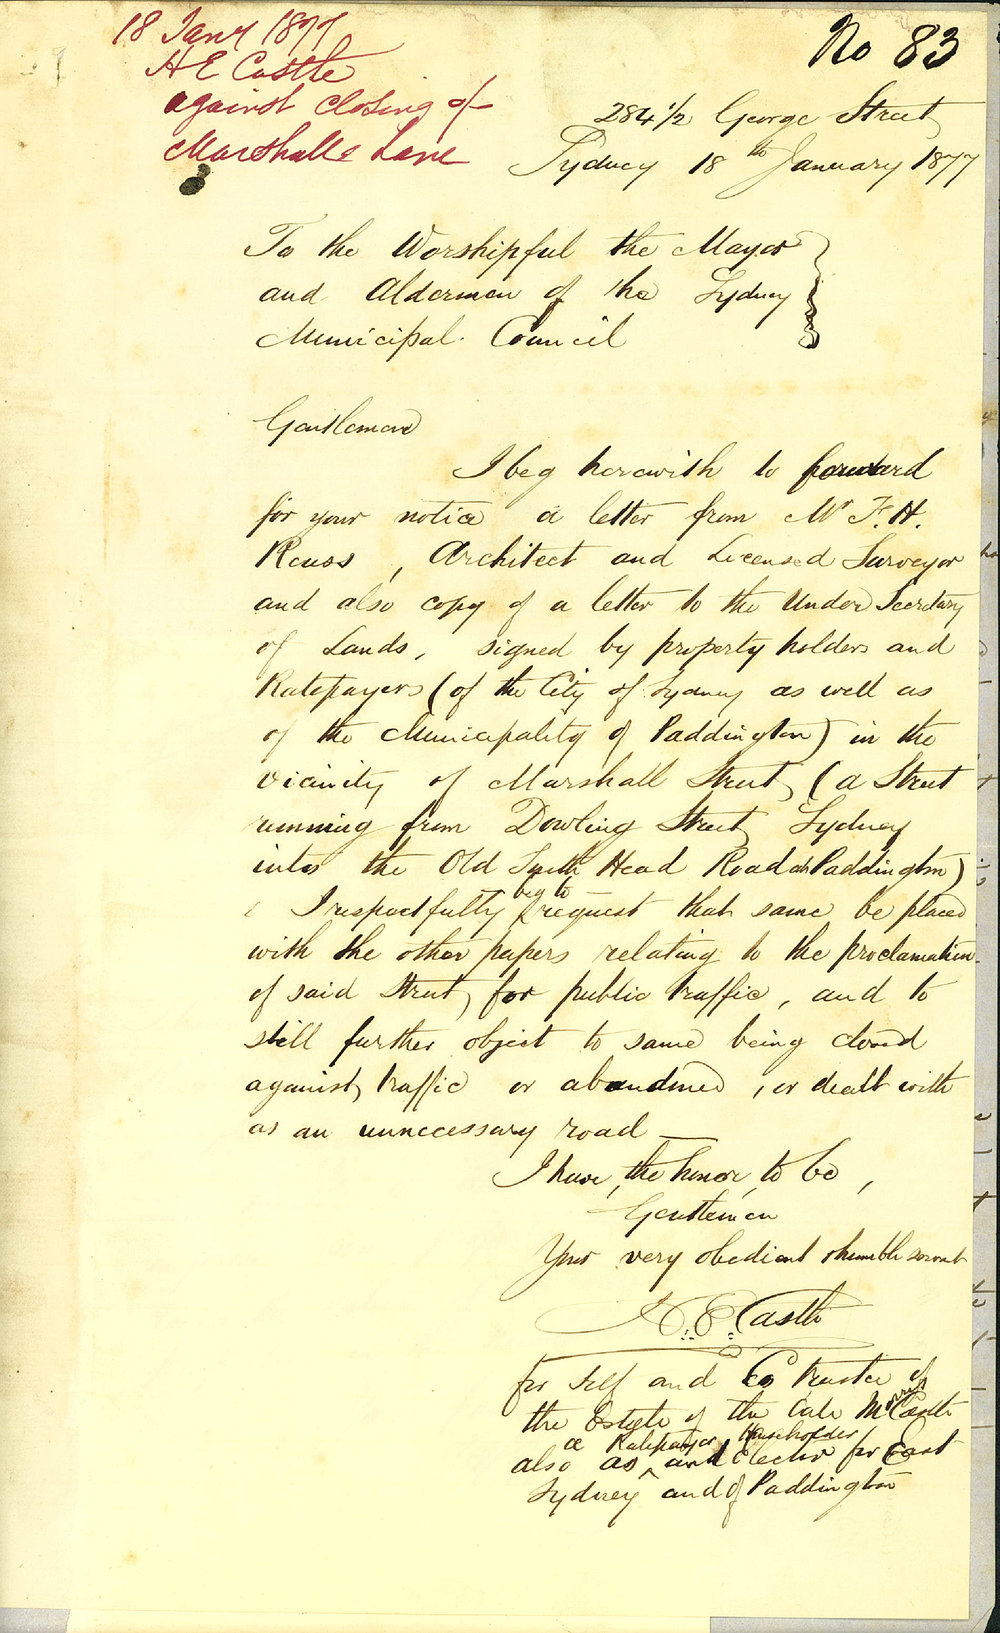 18 Jany 1877
H E Castle
against closing of
Marshalls Lane
No 83
284 1/2 George Street
Sydney 18th January 1877
To the Worshipful the Mayor
and Aldermen of the Sydney
Municipal Council
Gentlemen
I beg herewith to forward
for your notice a letter from Mr F. H.
Reuss, Architect and Licensed Surveyor
and also copy of a letter to the Under Secretary
of Lands, signed by property holders and
Ratepayers (of the City of Sydney as well as
of the Municipality of Paddington) in the
vicinity of Marshall Street, (a Street
running from Dowling Street Sydney
into the Old South Head Road at Paddington)
I respectfully beg to request that same be placed
with the other papers relating to the proclamation
of said Street, for public traffic, and to
still further object to same being closed
against traffic or abandoned, or dealt with
as an unnecessary road —
I have, the honor, to be,
Gentlemen
Your very obedient & humble servant
H. E. Castle
for self and Co trustee of
the Estate of the late Mrs Castle
also as a Ratepayer Householder and Elector for East
Sydney and of Paddington